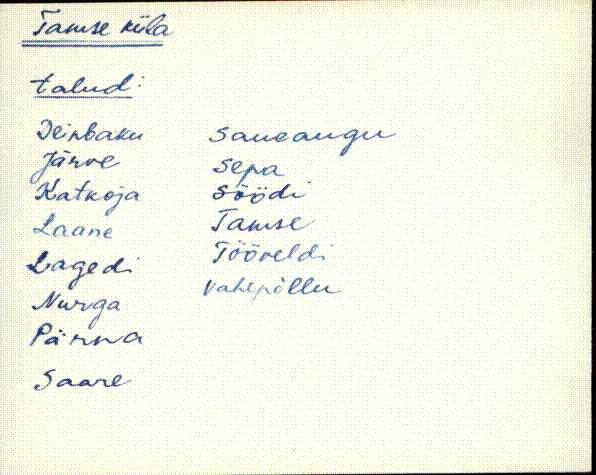 Tamse küla
talud:
Deinbaku
Järve
Katkoja
Laane
Lagedi
Nurga
Pärna
Saare
Saueaugu
Sepa
Söödi
Tamse
Tööveldi
Vahepõllu